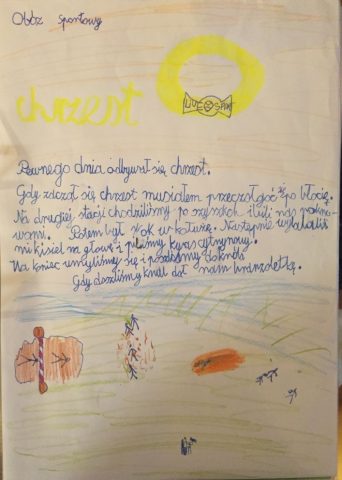 Obóz sportowy
chrzest
Pewnego dnia odbywał się chrzest.
Gdy zdział się chrzest musiałem przeczołgać się po błocie.
Na drugiej stacji chodziliśmy po szyszkach i bili nas
Potem był skok w kałużę. Następnie wylewali
mi kisiel na głowę i piliśmy kwas cytrynowy.
Na koniec umyliśmy się i poszliśmy do króla
Gdy doszliśmy król dał nam bransoletkę.